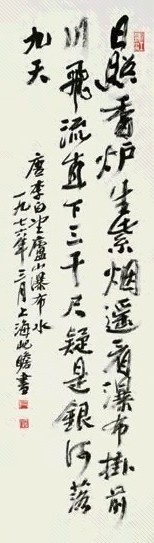 日照香炉生紫烟遥看瀑布掛前
川飛流直下三千尺疑是銀河落
九天
唐李白望廬山瀑布水
一九七六年三月上海屺瞻書